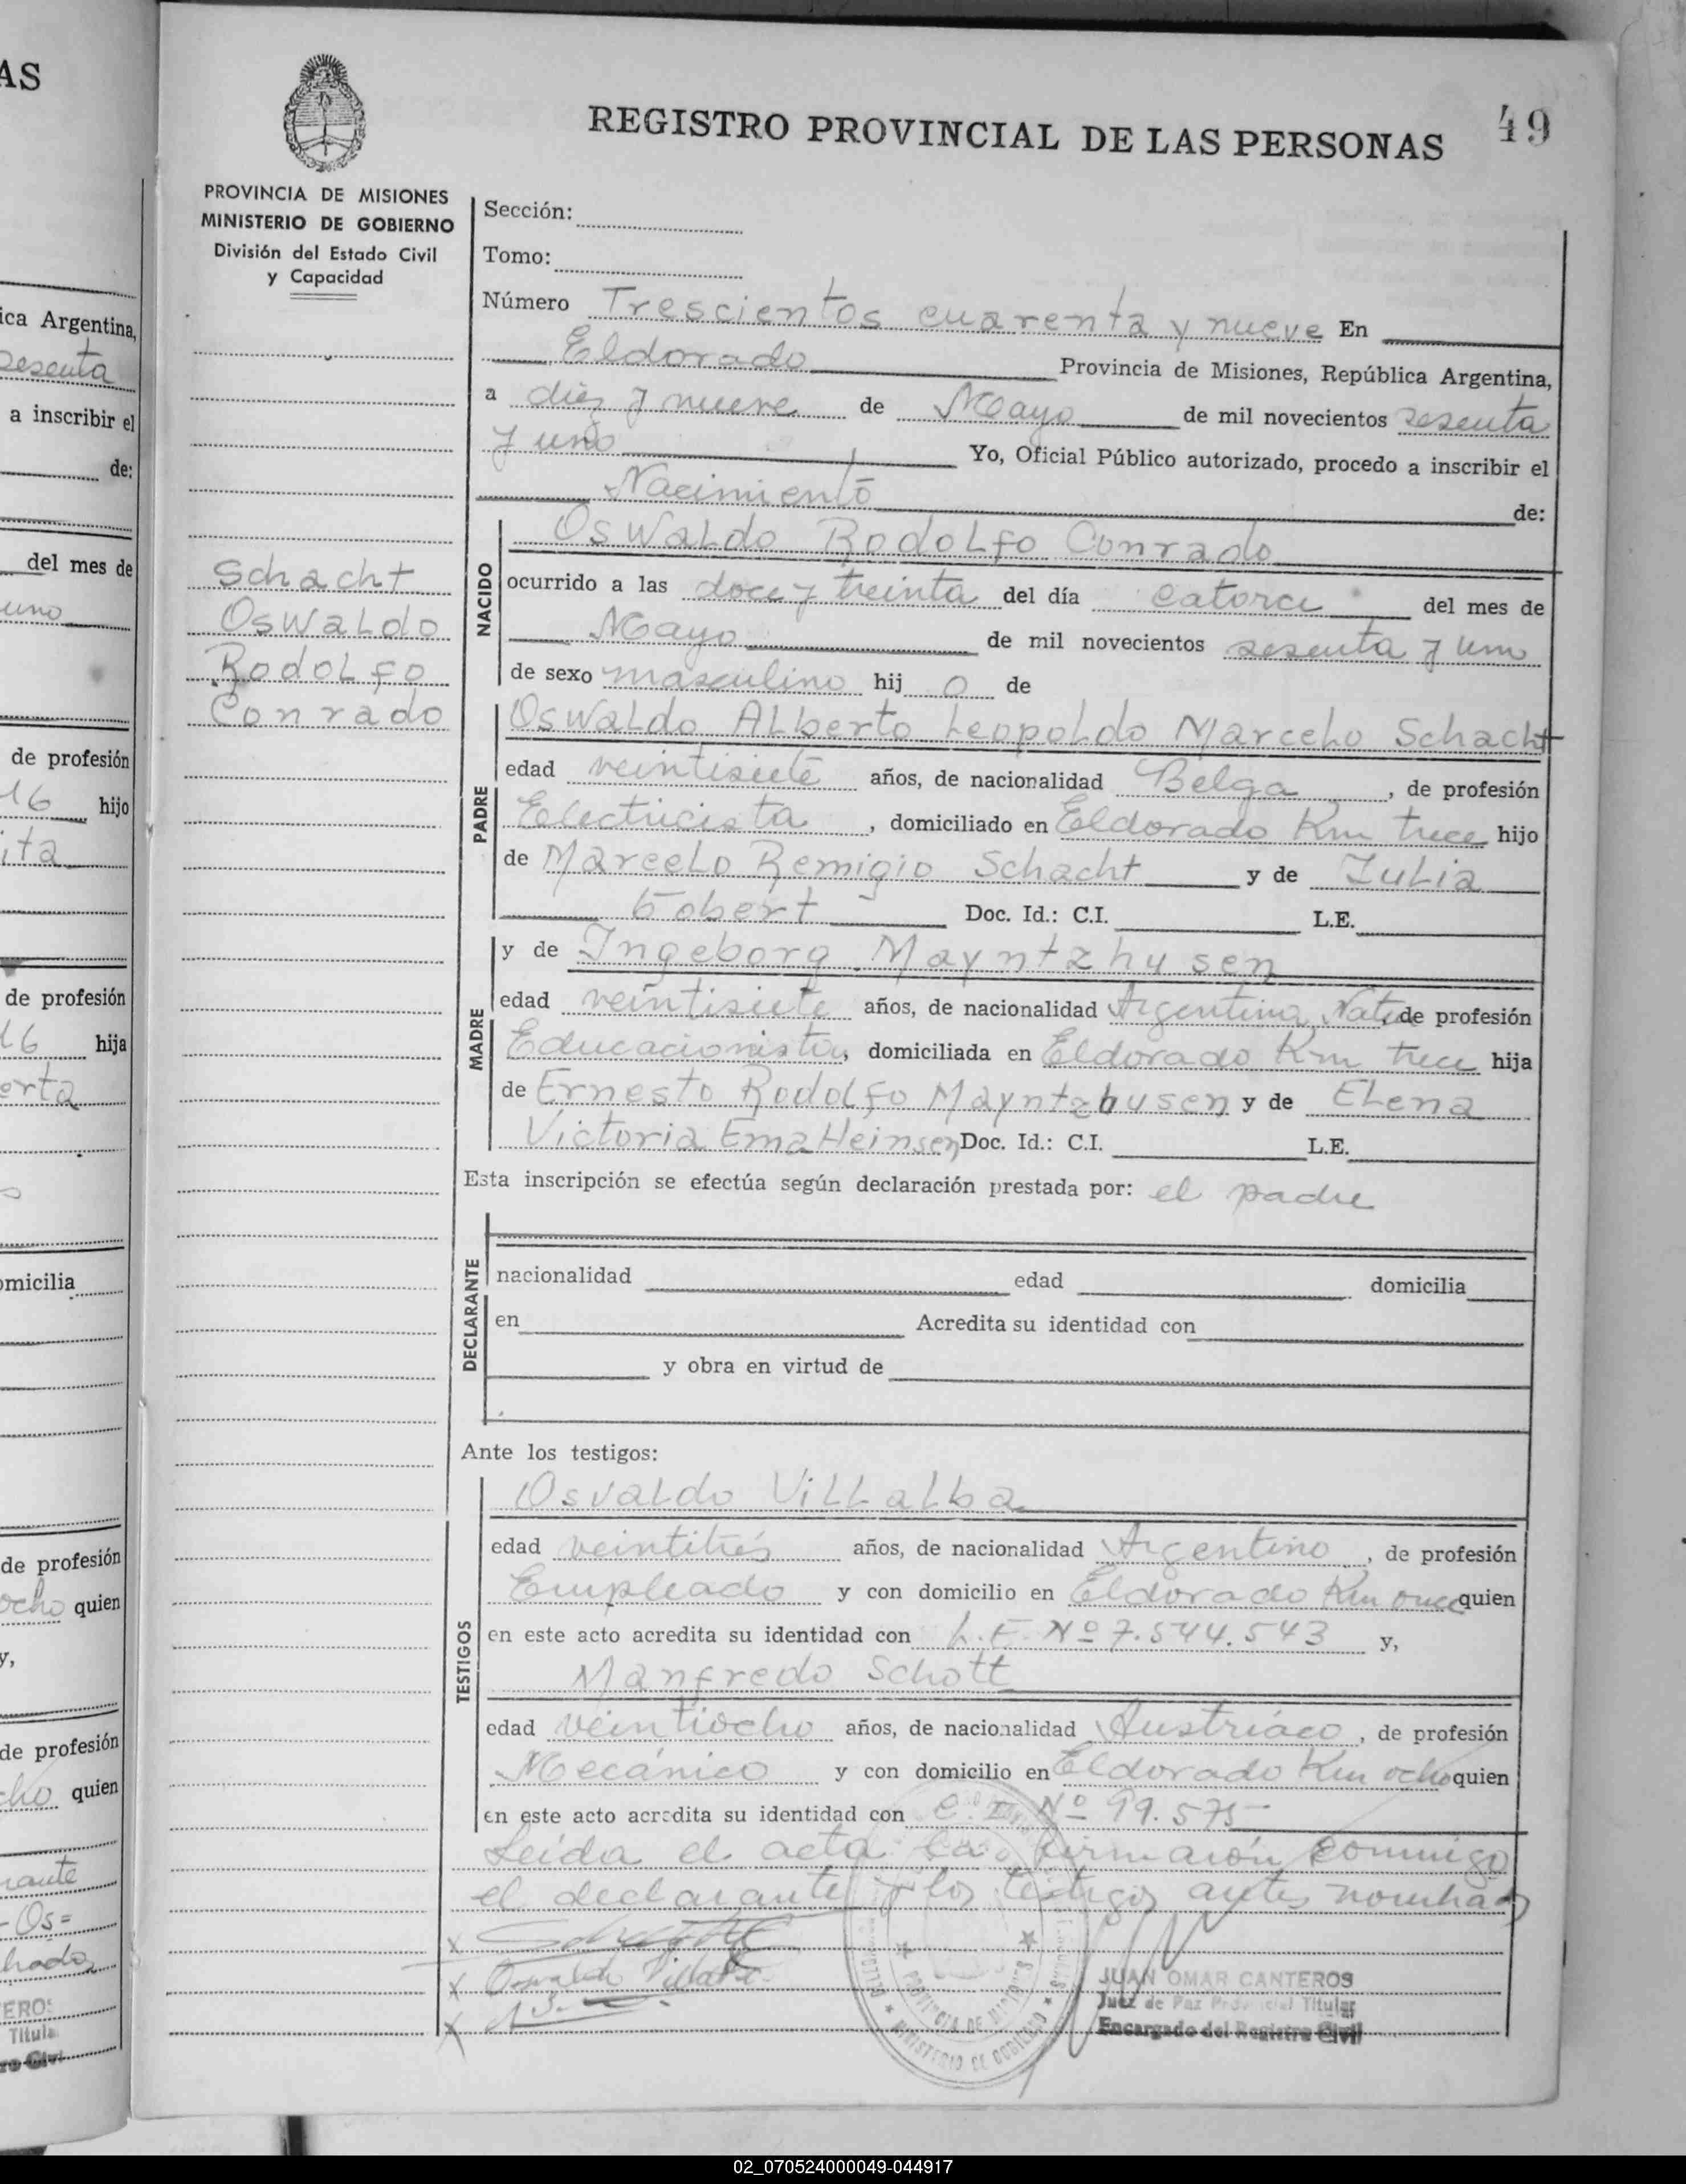 AS
REGISTRO PROVINCIAL DE LAS PERSONAS 49
PROVINCIA DE MISIONES
MINISTERIO DE GOBIERNO
División del Estado Civil
y Capacidad
Schacht
Oswaldo
Rodolfo
Conrado
Sección:
Tomo:
Número Trescientos cuarenta y nueve En
Eldorado Provincia de Misiones, República Argentina,
a diez y nueve de Mayo de mil novecientos sesenta
y uno Yo, Oficial Público autorizado, procedo a inscribir el
Nacimiento de:
NACIDO
Oswaldo Rodolfo Conrado
ocurrido a las doce y treinta del día catorce del mes de
Mayo de mil novecientos sesenta y uno
de sexo masculino hij o de
PADRE
Oswaldo Alberto Leopoldo Marcelo Schacht
edad veintisiete años, de nacionalidad Belga, de profesión
Electricista, domiciliado en Eldorado Km trece hijo
de Marcelo Remigio Schacht y de Julia
Gobert Doc. Id.: C.I. L.E.
MADRE
y de Ingeborg Mayntzhusen
edad veintisiete años, de nacionalidad Argentina Nata, de profesión
Educacionista, domiciliada en Eldorado Km trece hija
de Ernesto Rodolfo Mayntzhusen y de Elena
Victoria Ema Heinsen Doc. Id.: C.I. L.E.
Esta inscripción se efectúa según declaración prestada por: el padre
DECLARANTE
nacionalidad edad domicilia
en Acredita su identidad con
y obra en virtud de
Ante los testigos:
TESTIGOS
Osvaldo Villalba
edad veintitrés años, de nacionalidad Argentino, de profesión
Empleado y con domicilio en Eldorado Km once quien
en este acto acredita su identidad con L.E. Nº 7.544.543 y,
Manfredo Schott
edad veintiocho años, de nacionalidad Austríaco, de profesión
Mecánico y con domicilio en Eldorado Km ocho quien
en este acto acredita su identidad con C.I. Nº 99.575
Leida el acta la firmaron conmigo
el declarante y los testigos antes nombrados
x Schacht
x Oswaldo Villalba
x
JUAN OMAR CANTEROS
Juez de Paz Provincial Titular
Encargado del Registro Civil
PROVINCIA DE MISIONES
MINISTERIO DE GOBIERNO
ica Argentina,
sesenta
a inscribir el
de:
del mes de
uno
de profesión
16 hijo
ita
de profesión
16 hija
erta
omicilia
de profesión
ocho quien
y,
de profesión
cho quien
rante
-Os=
hado
EROS
Titula
02_070524000049-044917